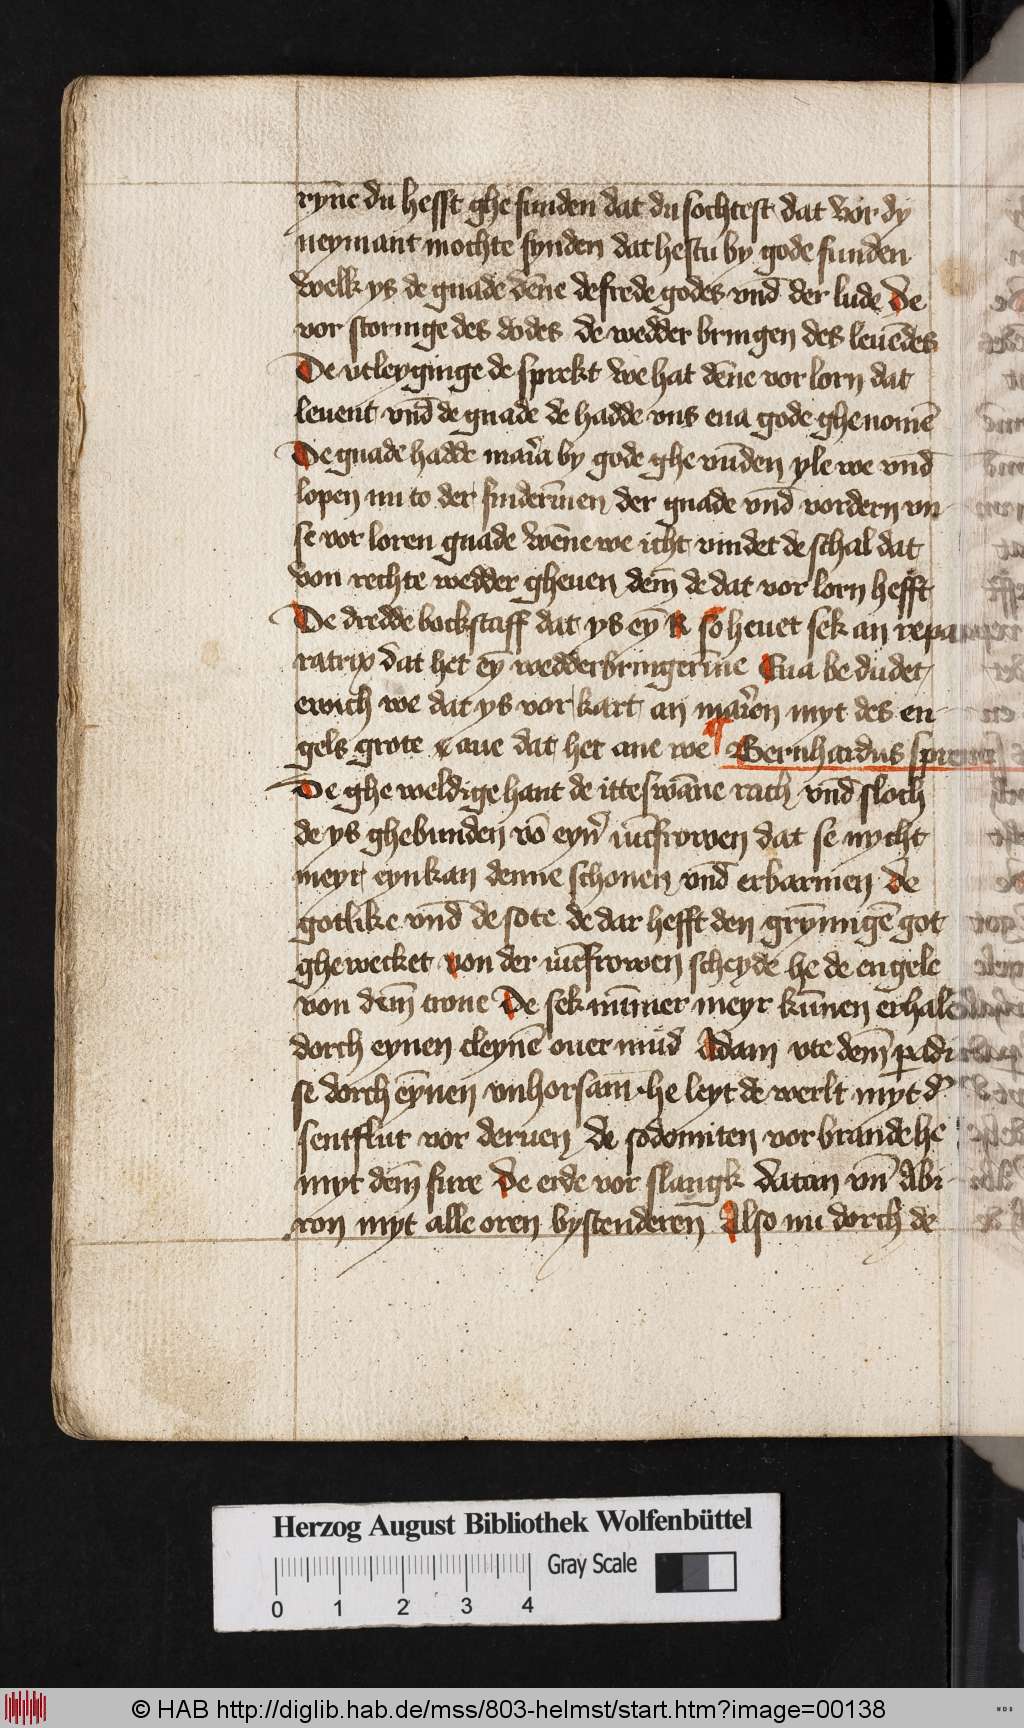 ryn̄e du hefft ghe funden dat du sochtest dat vor dy
neymant mochte fynden dat hestu by gode funden
welk ys de gnade dēne de frede godes vnd̄ der lude De
vor storinge des dodes de wedder bringen des leuēdes
De vtleyginge de sprekt we hat dēne vor lorn dat
leuent vnd̄ de gnade de hadde vns eua gode ghe nomē
De gnade hadde maria by gode ghe vūden yle we vnd̄
lopen nu to der finderīnen der gnade vnd̄ vordern vn
se vor loren gnade wēne we icht vindet de schal dat
von rechte wedder gheuen dem̄ de dat vor lorn hefft
De dredde bockstaff dat ys eȳ R so heuet sek an repa
ratrix dat het eȳ wedderbringerīne Eua be dudet
ewich we dat ys vor kart an marien myt des en
gels grote aue dat het ane we Bernhardus
De ghe weldige hant de itteswāne rach vnd̄ sloch
de ys ghebunden vō eyner iūcfrowen dat se nycht
meyr eynkan denne schonen vnd̄ erbarmen De
gotlike vnd̄ de sote de dar hefft den grȳmigē got
ghe wecket von der iūcfrowen scheyde he de engele
von dem̄ trone De sek nūmer meyr kūnen erhale
dorch eynen cleynē ouer mud Adam vte dem̄ padi
se dorch eȳnen vnhorsam he leyt de werlt myt d'
sentflut vor deruen De sodomiten vor brande he
myt dem̄ fure De erde vor slangk datan vn̄ Abi
ron myt alle oren bystenderen Also nu dorch de
Herzog August Bibliothek Wolfenbüttel
Gray Scale
0 1 2 3 4
© HAB http://diglib.hab.de/mss/803-helmst/start.htm?image=00138